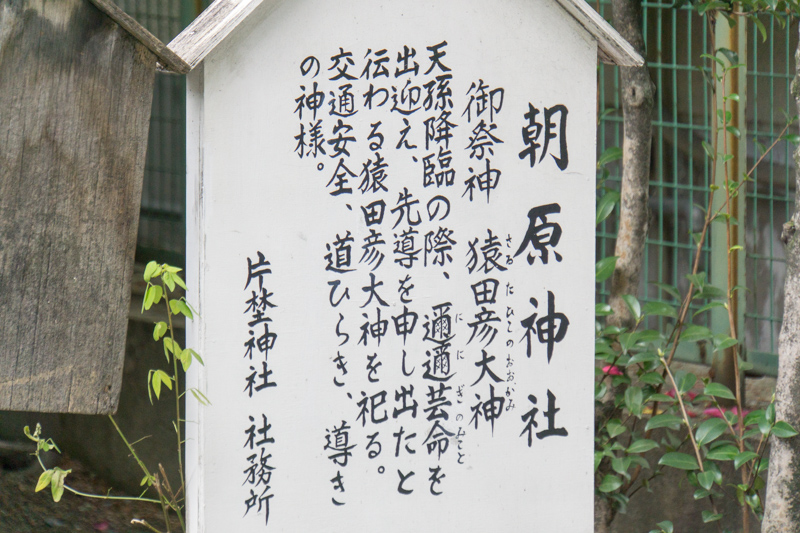 朝原神社
御祭神 猿田彦大神
さるたひこのおおかみ
天孫降臨の際、邇邇芸命を
ににぎのみこと
出迎え、先導を申し出たと
伝わる猿田彦大神を祀る。
交通安全、道ひらき、導き
の神様。
片埜神社 社務所